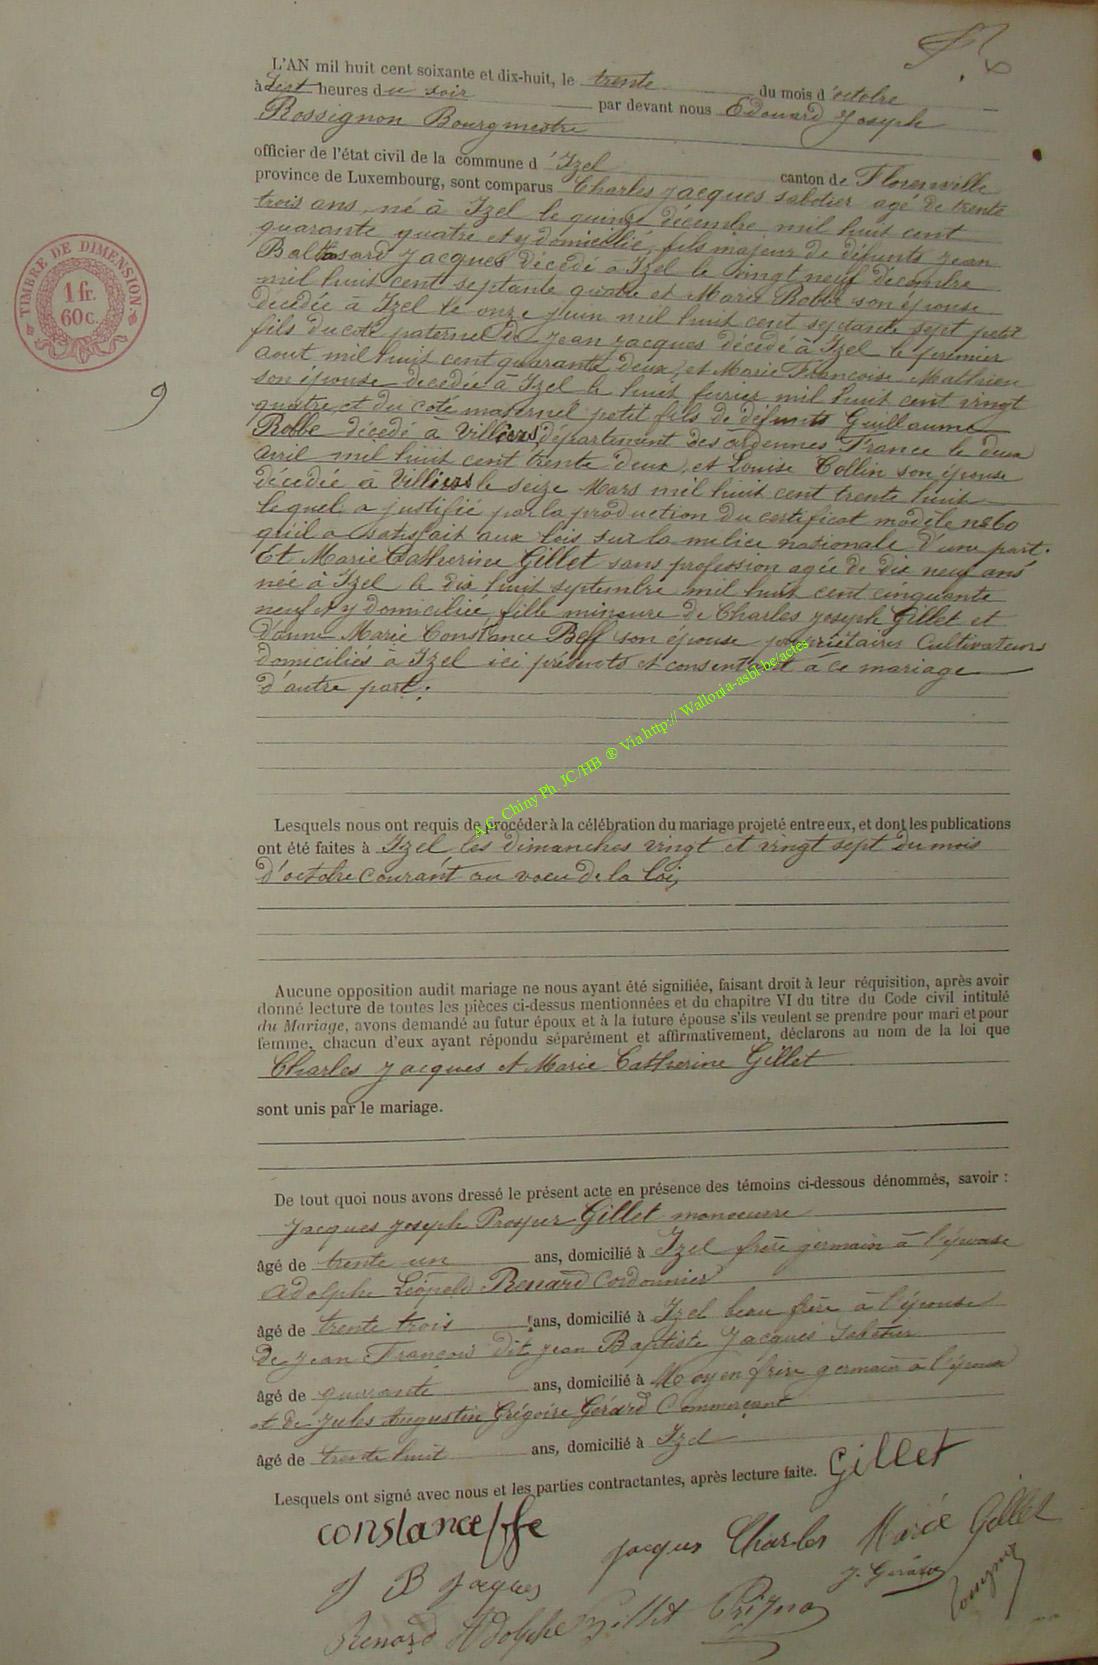 L'AN mil huit cent soixante et dix-huit, le trente du mois d'octobre
à sept heures du soir par devant nous Edouard Joseph
Rossignon Bourgmestre
officier de l'état civil de la commune d'Izel canton de Florenville
province de Luxembourg, sont comparus Charles Jacques sabotier agé de trente
trois ans, né à Izel le quinze décembre mil huit cent
quarante quatre et y domicilié, fils majeur de défunts Jean
Baltasard Jacques décédé à Izel le vingt neuf décembre
mil huit cent septante quatre et Marie Robbe son épouse
décédée à Izel le onze juin mil huit cent septante sept petit
fils du coté paternel de Jean Jacques décédé à Izel le premier
aout mil huit cent quarante deux, et Marie Françoise Mathieu
son épouse décédée à Izel le huit fevrier mil huit cent vingt
quatre, et du coté maternel petit fils de défunts Guillaume
Robbe décédé à Villiers, département des ardennes France le deux
avril mil huit cent trente deux, et Louise Collin son épouse
décédée à Villiers le seize Mars mil huit cent trente huit
lequel a justifié par la production du certificat modèle no 60
qu'il a satisfait aux lois sur la milice nationale d'une part.
Et Marie Catherine Gillet sans profession agée de dix neuf ans
née à Izel le dix huit septembre mil huit cent cinquante
neuf et y domiciliée, fille mineure de Charles Joseph Gillet et
d'anne Marie Constance son épouse propriétaires Cultivateurs
domiciliés à Izel ici présents et consentant à ce mariage
d'autre part.
Lesquels nous ont requis de procéder à la célébration du mariage projeté entre eux, et dont les publications
ont été faites à Izel les dimanches vingt et vingt sept du mois
d'octobre courant au voeu de la loi,
Aucune opposition audit mariage ne nous ayant été signifiée, faisant droit à leur réquisition, après avoir
donné lecture de toutes les pièces ci-dessus mentionnées et du chapitre VI du titre du Code civil intitulé
du Mariage, avons demandé au futur époux et à la future épouse s'ils veulent se prendre pour mari et pour
femme, chacun d'eux ayant répondu séparément et affirmativement, déclarons au nom de la loi que
Charles Jacques et Marie Catherine Gillet
sont unis par le mariage.
De tout quoi nous avons dressé le présent acte en présence des témoins ci-dessous dénommés, savoir :
Jacques Joseph Prosper Gillet manoeuvre
âgé de trente un ans, domicilié à Izel frère germain à l'épouse
adolphe Léopold Renard Cordonnier
âgé de trente trois ans, domicilié à Izel beau frère à l'épouse
de Jean François dit Jean Baptiste Jacques Sabotier
âgé de quarante ans, domicilié à Moyen frère germain à l'époux
et de Jules Augustin Grégoire Gérard Commerçant
âgé de trente huit ans, domicilié à Izel
Lesquels ont signé avec nous et les parties contractantes, après lecture faite. Gillet
constance
Jacques Charles Marie Gillet
J B Jacques J. Gérard
Renard Adolphe Gillet
TIMBRE DE DIMENSION
1 fr.
60 c.
9
A.G. Chiny Ph. JC/HB ® Via http:// Wallonia-asbl-be/actes